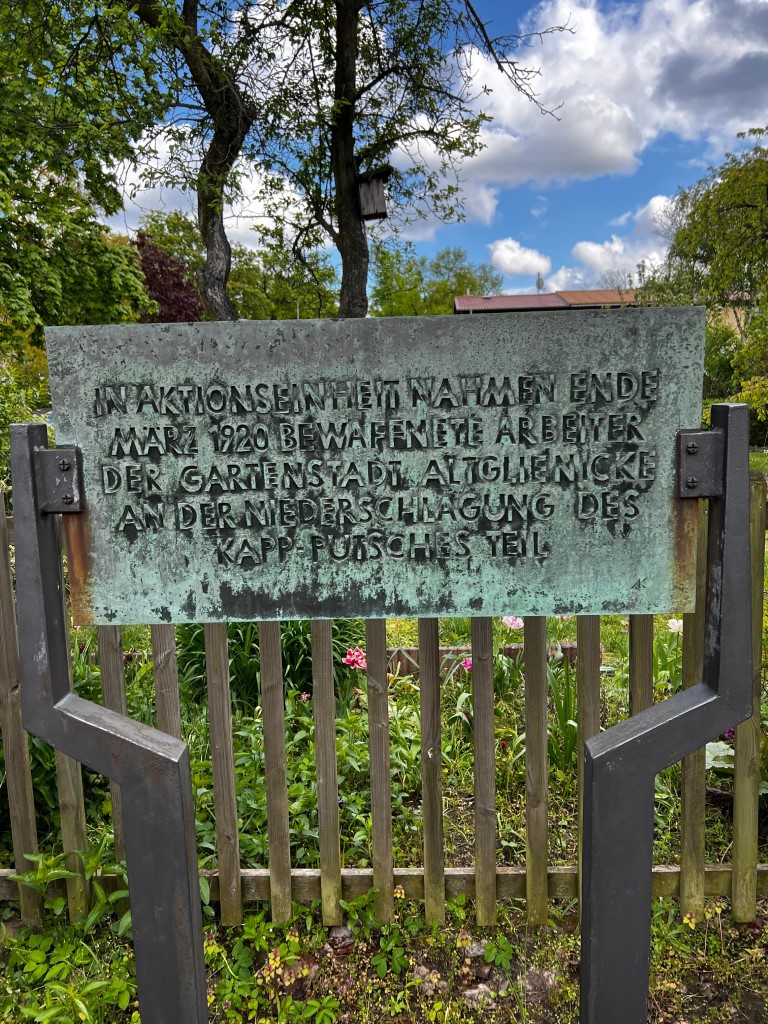 IN AKTIONSEINHEIT NAHMEN ENDE
MÄRZ 1920 BEWAFFNETE ARBEITER
DER GARTENSTADT ALTGLIENICKE
AN DER NIEDERSCHLAGUNG DES
KAPP-PUTSCHES TEIL
AK